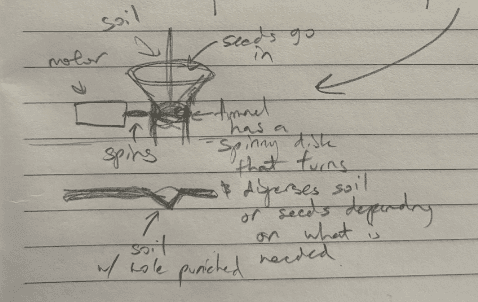 soil
seeds go
in
motor
funnel
has a
spinny disk
that turns
spins
& disperses soil
or seeds depending
on what is
needed.
soil
w/ hole punched